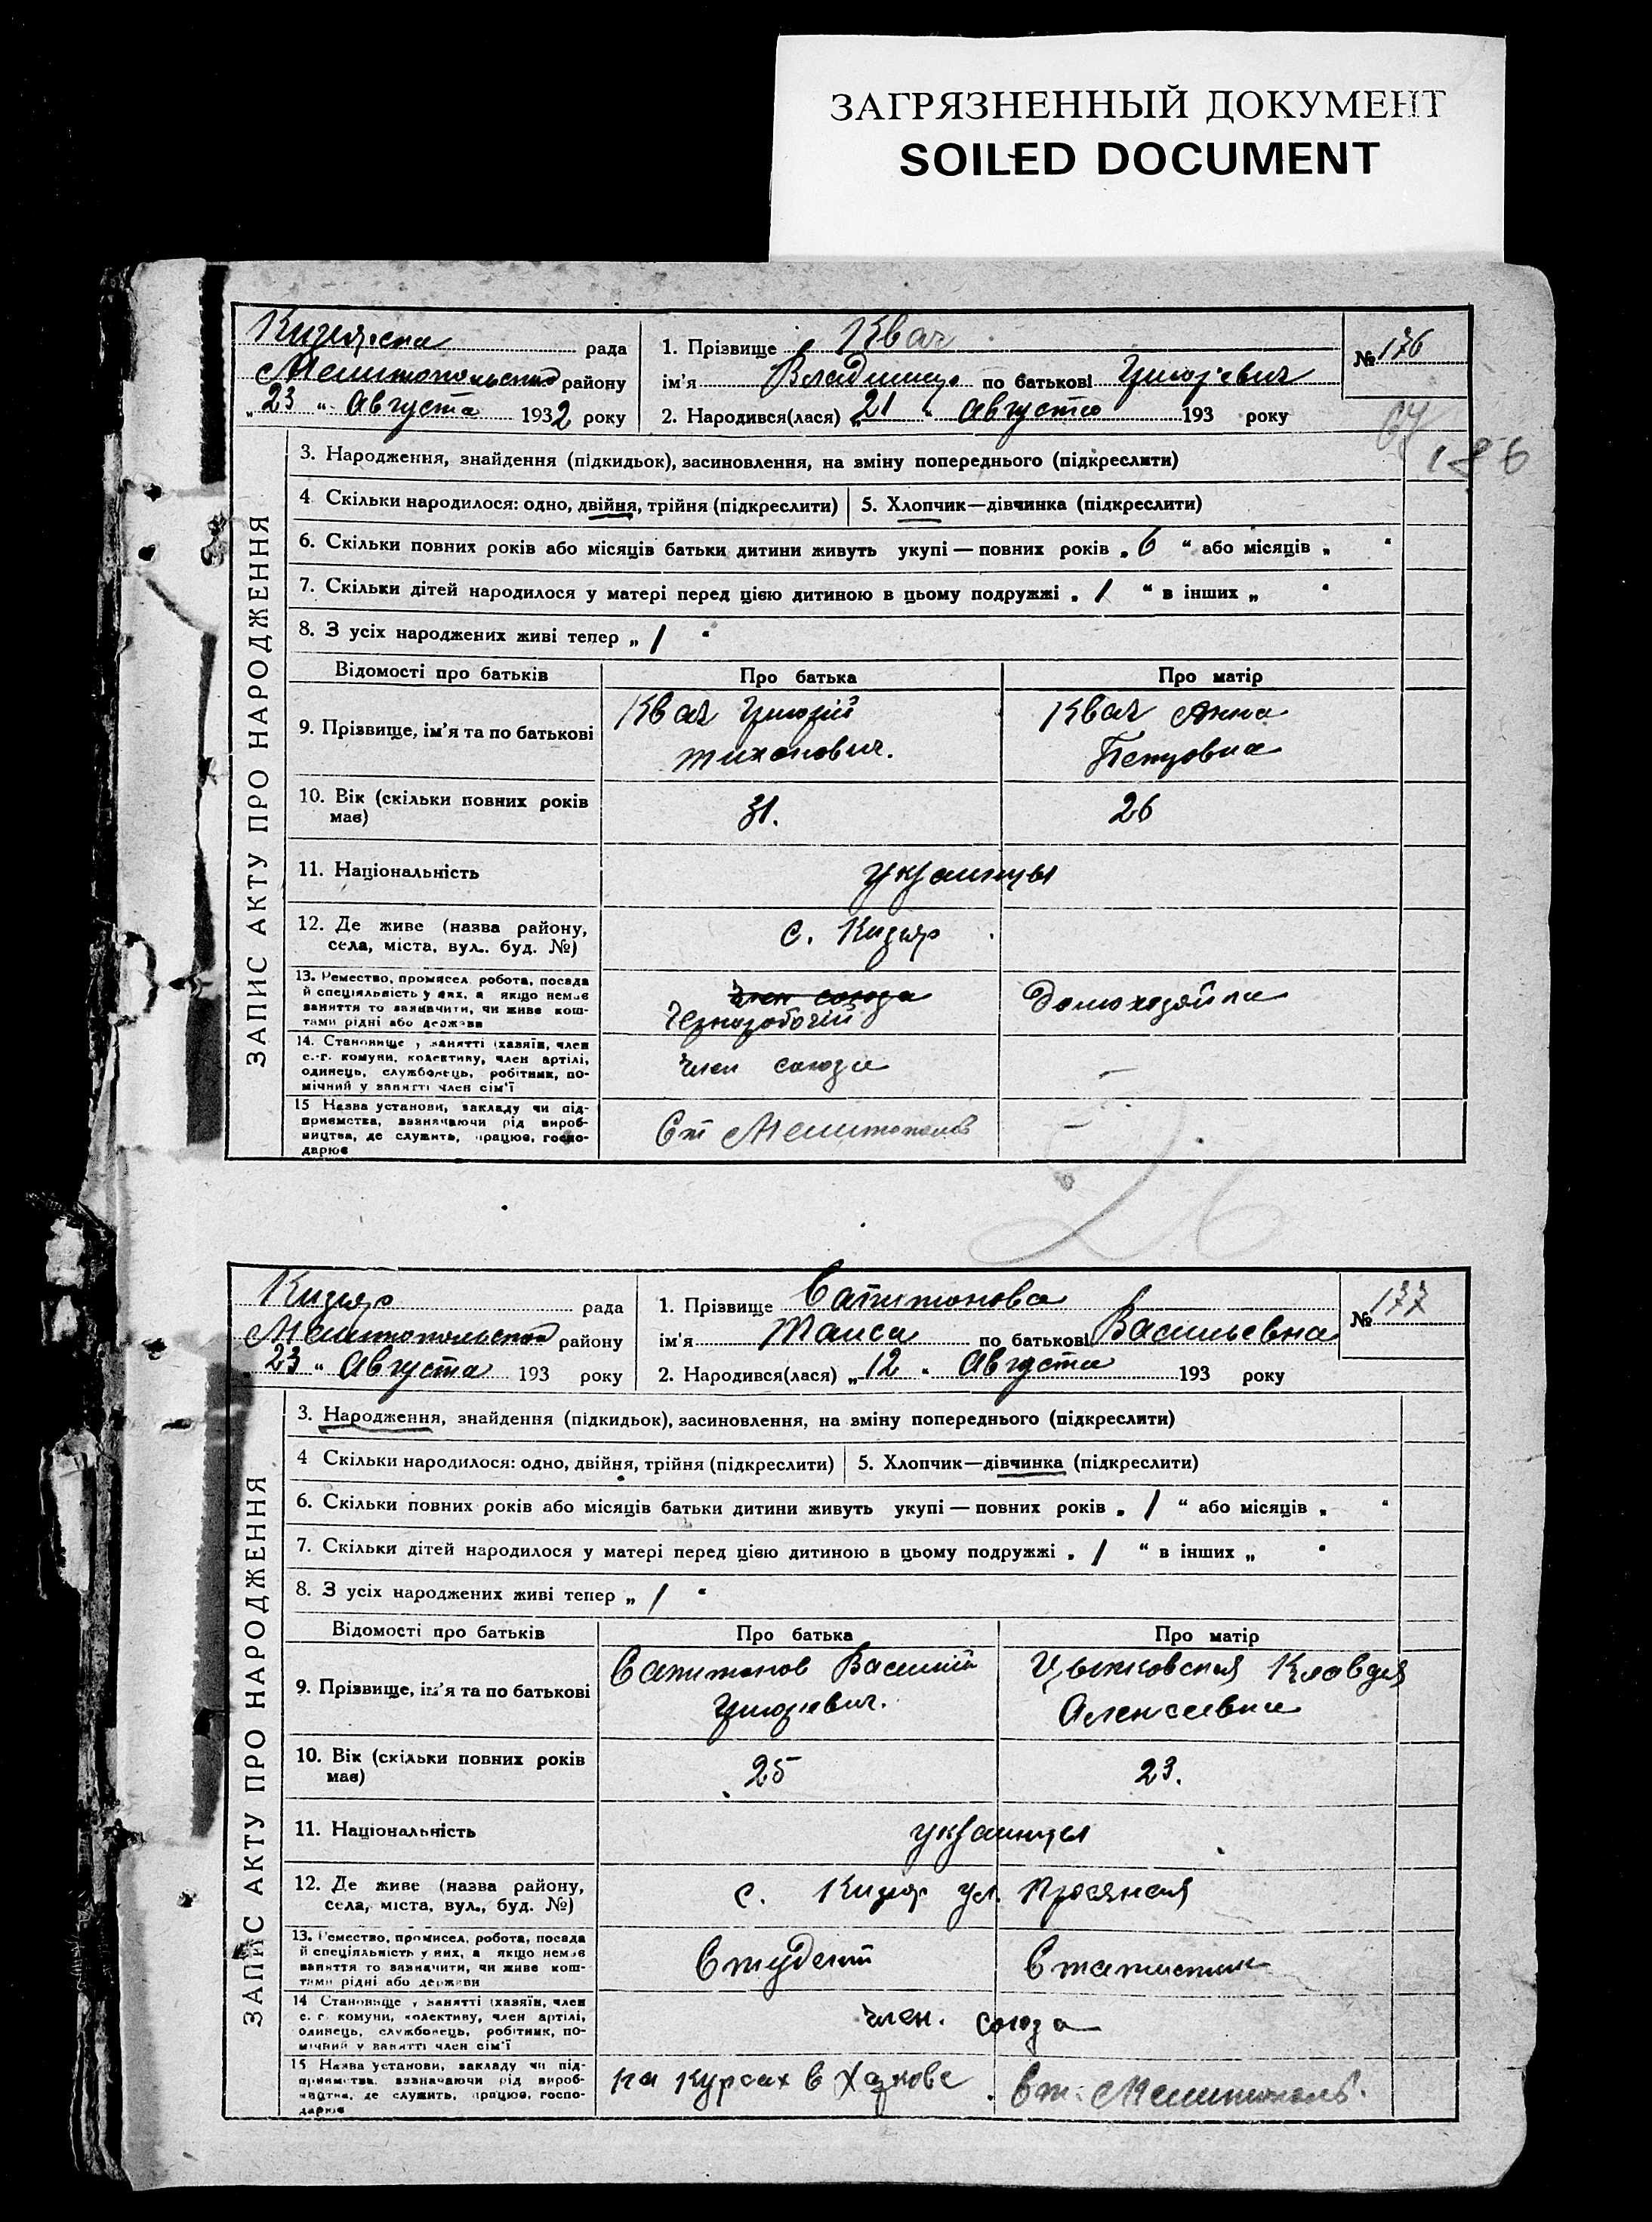 ЗАГРЯЗНЕННЫЙ ДОКУМЕНТ
SOILED DOCUMENT
рада
Мелитопольского району
„ 23 " Августа 1932 року
1. Прізвище Квач
ім'я Владимир по батькові Григорьевич
2. Народився(лася) „ 21 " Августа 193 року
№ 176
186
ЗАПИС АКТУ ПРО НАРОДЖЕННЯ
3. Народження, знайдення (підкидьок), засиновлення, на зміну попереднього (підкреслити)
4 Скільки народилося: одно, двійня, трійня (підкреслити) 5. Хлопчик—дівчинка (підкреслити)
6. Скільки повних років або місяців батьки дитини живуть укупі — повних років „ 6 " або місяців „ "
7. Скільки дітей народилося у матері перед цією дитиною в цьому подружжі „ 1 " в інших „ "
8. З усіх народжених живі тепер „ 1 "
Відомості про батьків Про батька Про матір
9. Прізвище, ім'я та по батькові
Квач Григорій
Тихонович.
Квач Анна
Петровна
10. Вік (скільки повних років
має)
31.
26
11. Національність
украинцы
12. Де живе (назва району,
села, міста, вул. буд. №)
с. Кизияр
13. Ремество, промисел, робота, посада
й спеціяльність у них, а якщо немає
заняття то зазначити, чи живе кош-
тами рідні або держави
Член союза
Чернорабочій
Домохозяйка
14. Становище у занятті (хазяїн, член
с.-г. комуни, колективу, член артілі,
одинець, службовець, робітник, по-
мічний у занятті член сім'ї
Член союза
—
15 Назва установи, закладу чи під-
приємства, зазначаючи рід вироб-
ництва, де служить, працює, госпо-
дарює
Ст Мелитополь
—
Кизияр рада
Мелитопольского району
23 " Августа 193 року
1. Прізвище Сапитонова
ім'я Таиса по батькові Васильевна
2. Народився(лася) „ 12 " Августа 193 року
№ 177
ЗАПИС АКТУ ПРО НАРОДЖЕННЯ
3. Народження, знайдення (підкидьок), засиновлення, на зміну попереднього (підкреслити)
4 Скільки народилося: одно, двійня, трійня (підкреслити) 5. Хлопчик—дівчинка (підкреслити)
6. Скільки повних років або місяців батьки дитини живуть укупі — повних років „ 1 " або місяців „ "
7. Скільки дітей народилося у матері перед цією дитиною в цьому подружжі „ 1 " в інших „ "
8. З усіх народжених живі тепер „ 1 "
Відомості про батьків Про батька Про матір
9. Прізвище, ім'я та по батькові
Сапитонов Василий
Григоревич.
Клавдия
Алексеевна
10. Вік (скільки повних років
має)
25
23.
11. Національність
украинцы
12. Де живе (назва району,
села, міста, вул., буд. №)
с. Кизияр ул. Просяная
13. Ремество, промисел, робота, посада
й спеціяльність у них, а якщо немає
заняття то зазначити, чи живе кош-
тами рідні або держави
Студент
Статистик
14 Становище у занятті (хазяїн, член
с. г. комуни, колективу, член артілі,
одинець, службовець, робітник, по-
мічний у занятті член сім'ї
Член. союза
15 Назва установи, закладу чи під-
приємства, зазначаючи рід вироб-
ництва, де служить, працює, госпо-
дарює
На курсах в Харкове
Ст. Мелитополь.